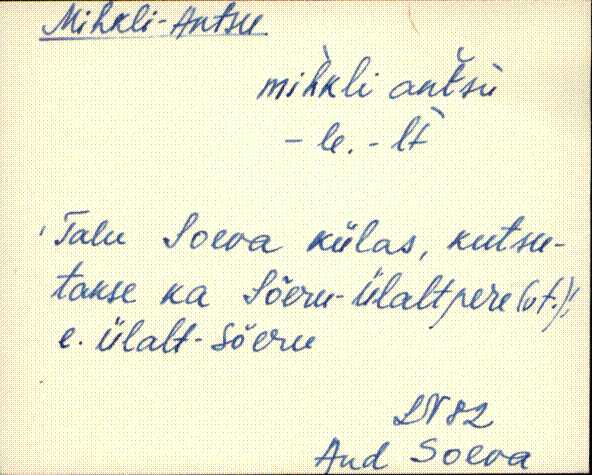 Mihkli-Antsu
mìhkli antšù
- le. - lt̀
'Talu Soeva külas, kutsu-
takse ka Sõeru-Ülaltpere (vt.)',
e. Ülalt-Sõeru
LN 82
Aud Soeva